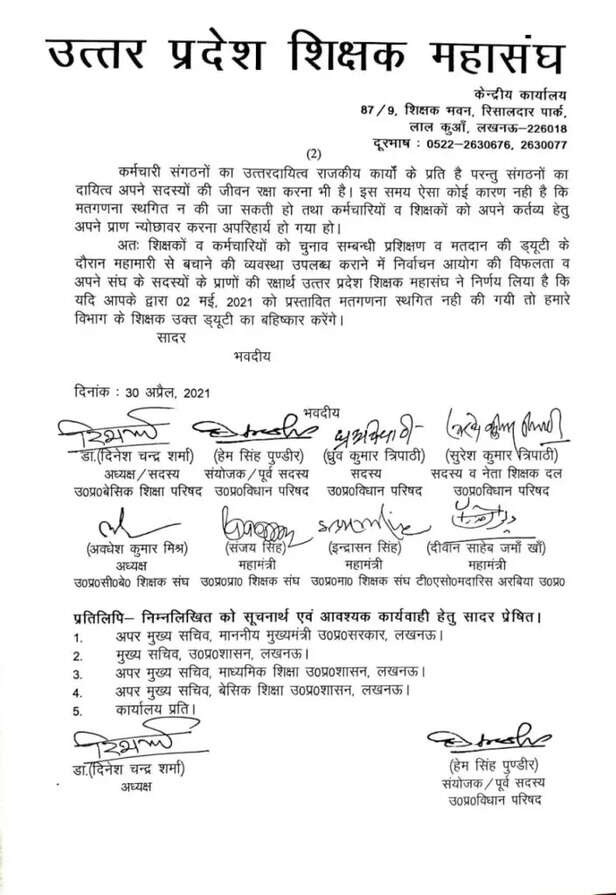 उत्तर प्रदेश शिक्षक महासंघ
केन्द्रीय कार्यालय
87/9, शिक्षक भवन, रिसालदार पार्क,
लाल कुआँ, लखनऊ-226018
दूरभाष : 0522-2630676, 2630077
(2)
कर्मचारी संगठनों का उत्तरदायित्व राजकीय कार्यों के प्रति है परन्तु संगठनों का
दायित्व अपने सदस्यों की जीवन रक्षा करना भी है। इस समय ऐसा कोई कारण नही है कि
मतगणना स्थगित न की जा सकती हो तथा कर्मचारियों व शिक्षकों को अपने कर्तव्य हेतु
अपने प्राण न्योछावर करना अपरिहार्य हो गया हो।
अतः शिक्षकों व कर्मचारियों को चुनाव सम्बन्धी प्रशिक्षण व मतदान की ड्यूटी के
दौरान महामारी से बचाने की व्यवस्था उपलब्ध कराने में निर्वाचन आयोग की विफलता व
अपने संघ के सदस्यों के प्राणों की रक्षार्थ उत्तर प्रदेश शिक्षक महासंघ ने निर्णय लिया है कि
यदि आपके द्वारा 02 मई, 2021 को प्रस्तावित मतगणना स्थगित नही की गयी तो हमारे
विभाग के शिक्षक उक्त ड्यूटी का बहिष्कार करेंगे।
सादर
भवदीय
दिनांक : 30 अप्रैल, 2021
भवदीय
डा.(दिनेश चन्द्र शर्मा) (हेम सिंह पुण्डीर) (ध्रुव कुमार त्रिपाठी) (सुरेश कुमार त्रिपाठी)
अध्यक्ष/सदस्य संयोजक/पूर्व सदस्य सदस्य सदस्य व नेता शिक्षक दल
उ0प्र0बेसिक शिक्षा परिषद उ0प्र0विधान परिषद उ0प्र0विधान परिषद उ0प्र0विधान परिषद
(अवधेश कुमार मिश्र) (संजय सिंह) (इन्द्रासन सिंह) (दीवान साहेब जमाँ खाँ)
अध्यक्ष महामंत्री महामंत्री महामंत्री
उ0प्र0सी0बे0 शिक्षक संघ उ0प्र0प्रा0 शिक्षक संघ उ0प्र0मा0 शिक्षक संघ टी0एसो0मदारिस अरबिया उ0प्र0
प्रतिलिपि– निम्नलिखित को सूचनार्थ एवं आवश्यक कार्यवाही हेतु सादर प्रेषित।
1. अपर मुख्य सचिव, माननीय मुख्यमंत्री उ0प्र0सरकार, लखनऊ।
2. मुख्य सचिव, उ0प्र0शासन, लखनऊ।
3. अपर मुख्य सचिव, माध्यमिक शिक्षा उ0प्र0शासन, लखनऊ।
4. अपर मुख्य सचिव, बेसिक शिक्षा उ0प्र0शासन, लखनऊ।
5. कार्यालय प्रति।
डा.(दिनेश चन्द्र शर्मा) (हेम सिंह पुण्डीर)
अध्यक्ष संयोजक/पूर्व सदस्य
उ0प्र0विधान परिषद